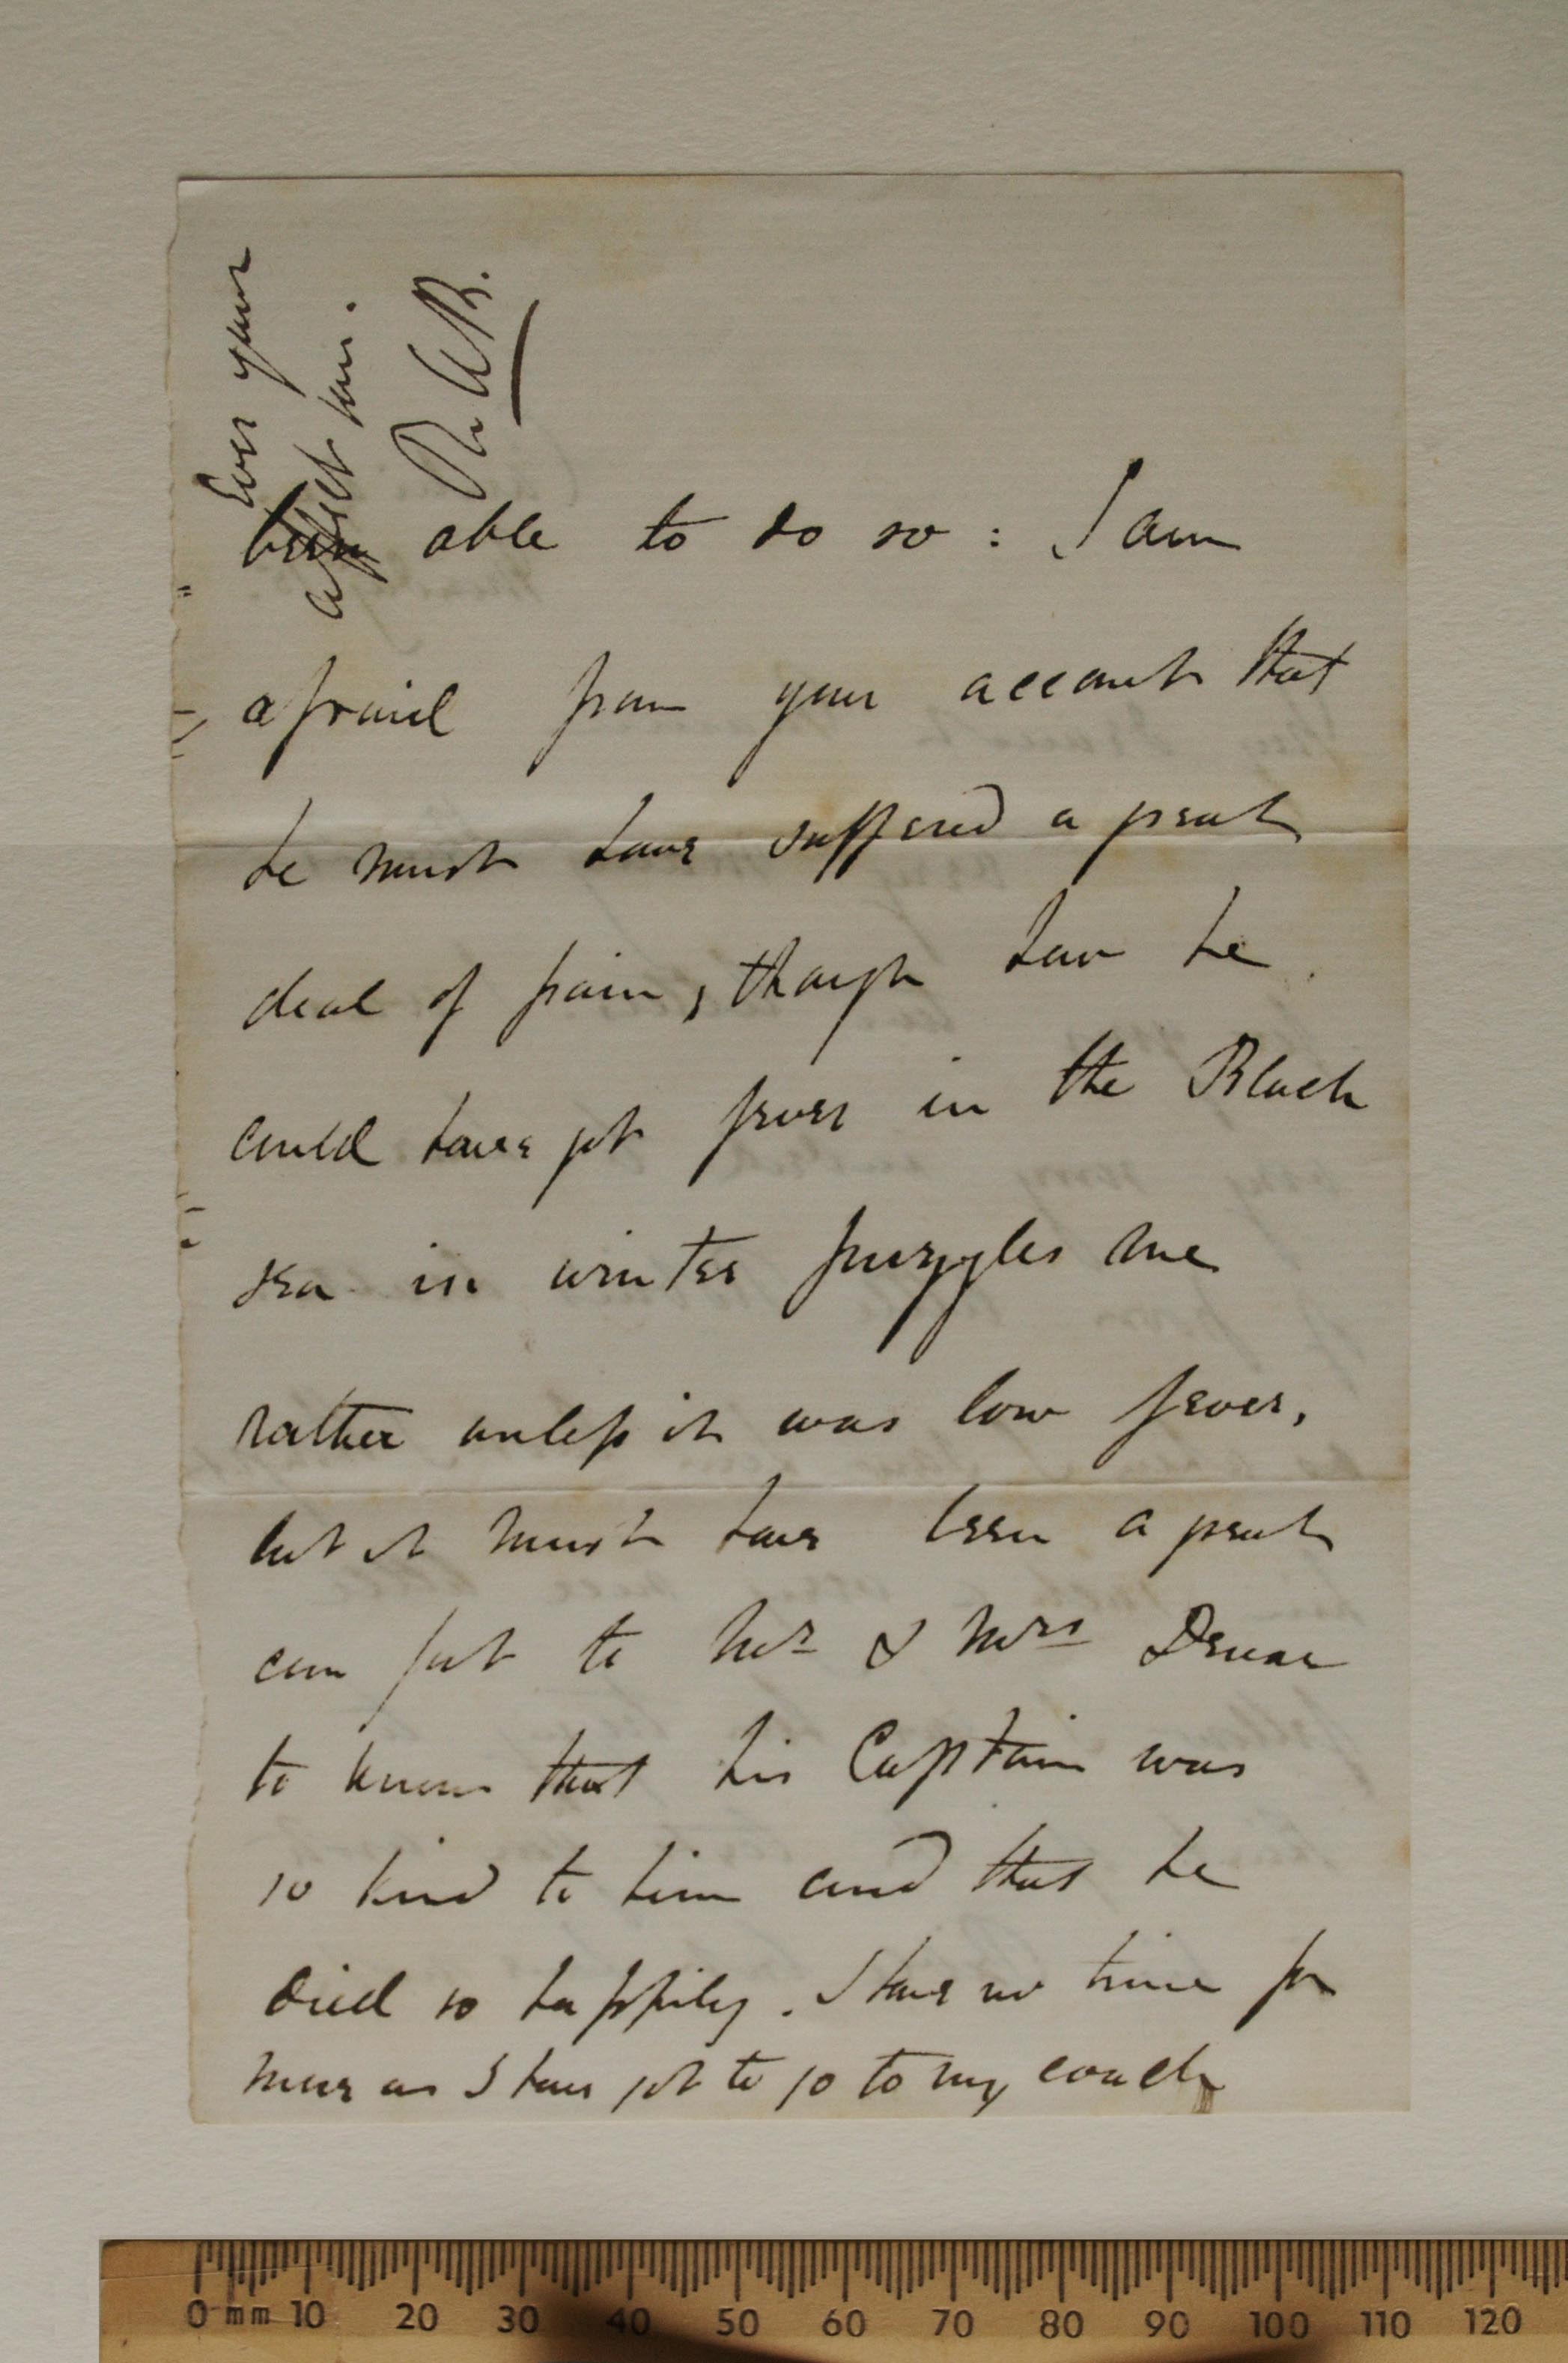 been able to do so : I am
afraid from your account that
he must have suffered a great
deal of pain, though how he
could have got fever in the Black
sea in winter puzzles me
rather unless it was low fever,
but it must have been a great
comfort to Mr & Mrs
to know that his Captain was
so kind to him and that he
died so happily. I have no time for
more as I have got to go to my coach
Ever your
affect son.
0 mm 10 20 30 40 50 60 70 80 90 100 110 120